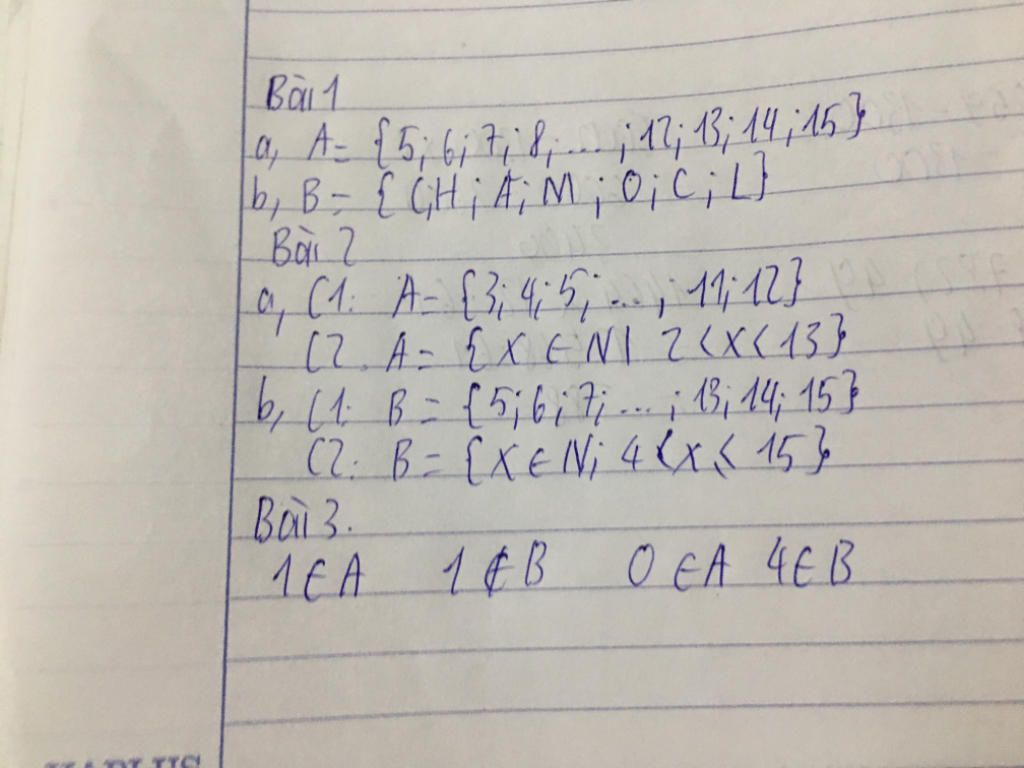 Bài 1
a, A = {5; 6; 7; 8; ... ; 12; 13; 14; 15}
b, B = {C; H; A; M; O; C; L}
Bài 2
a, C1: A = {3; 4; 5; ... ; 11; 12}
C2. A = {x ∈ N | 2 < x < 13}
b, C1: B = {5; 6; 7; ... ; 13; 14; 15}
C2: B = {x ∈ N; 4 < x ≤ 15}
Bài 3.
1 ∈ A 1 ∉ B 0 ∈ A 4 ∈ B